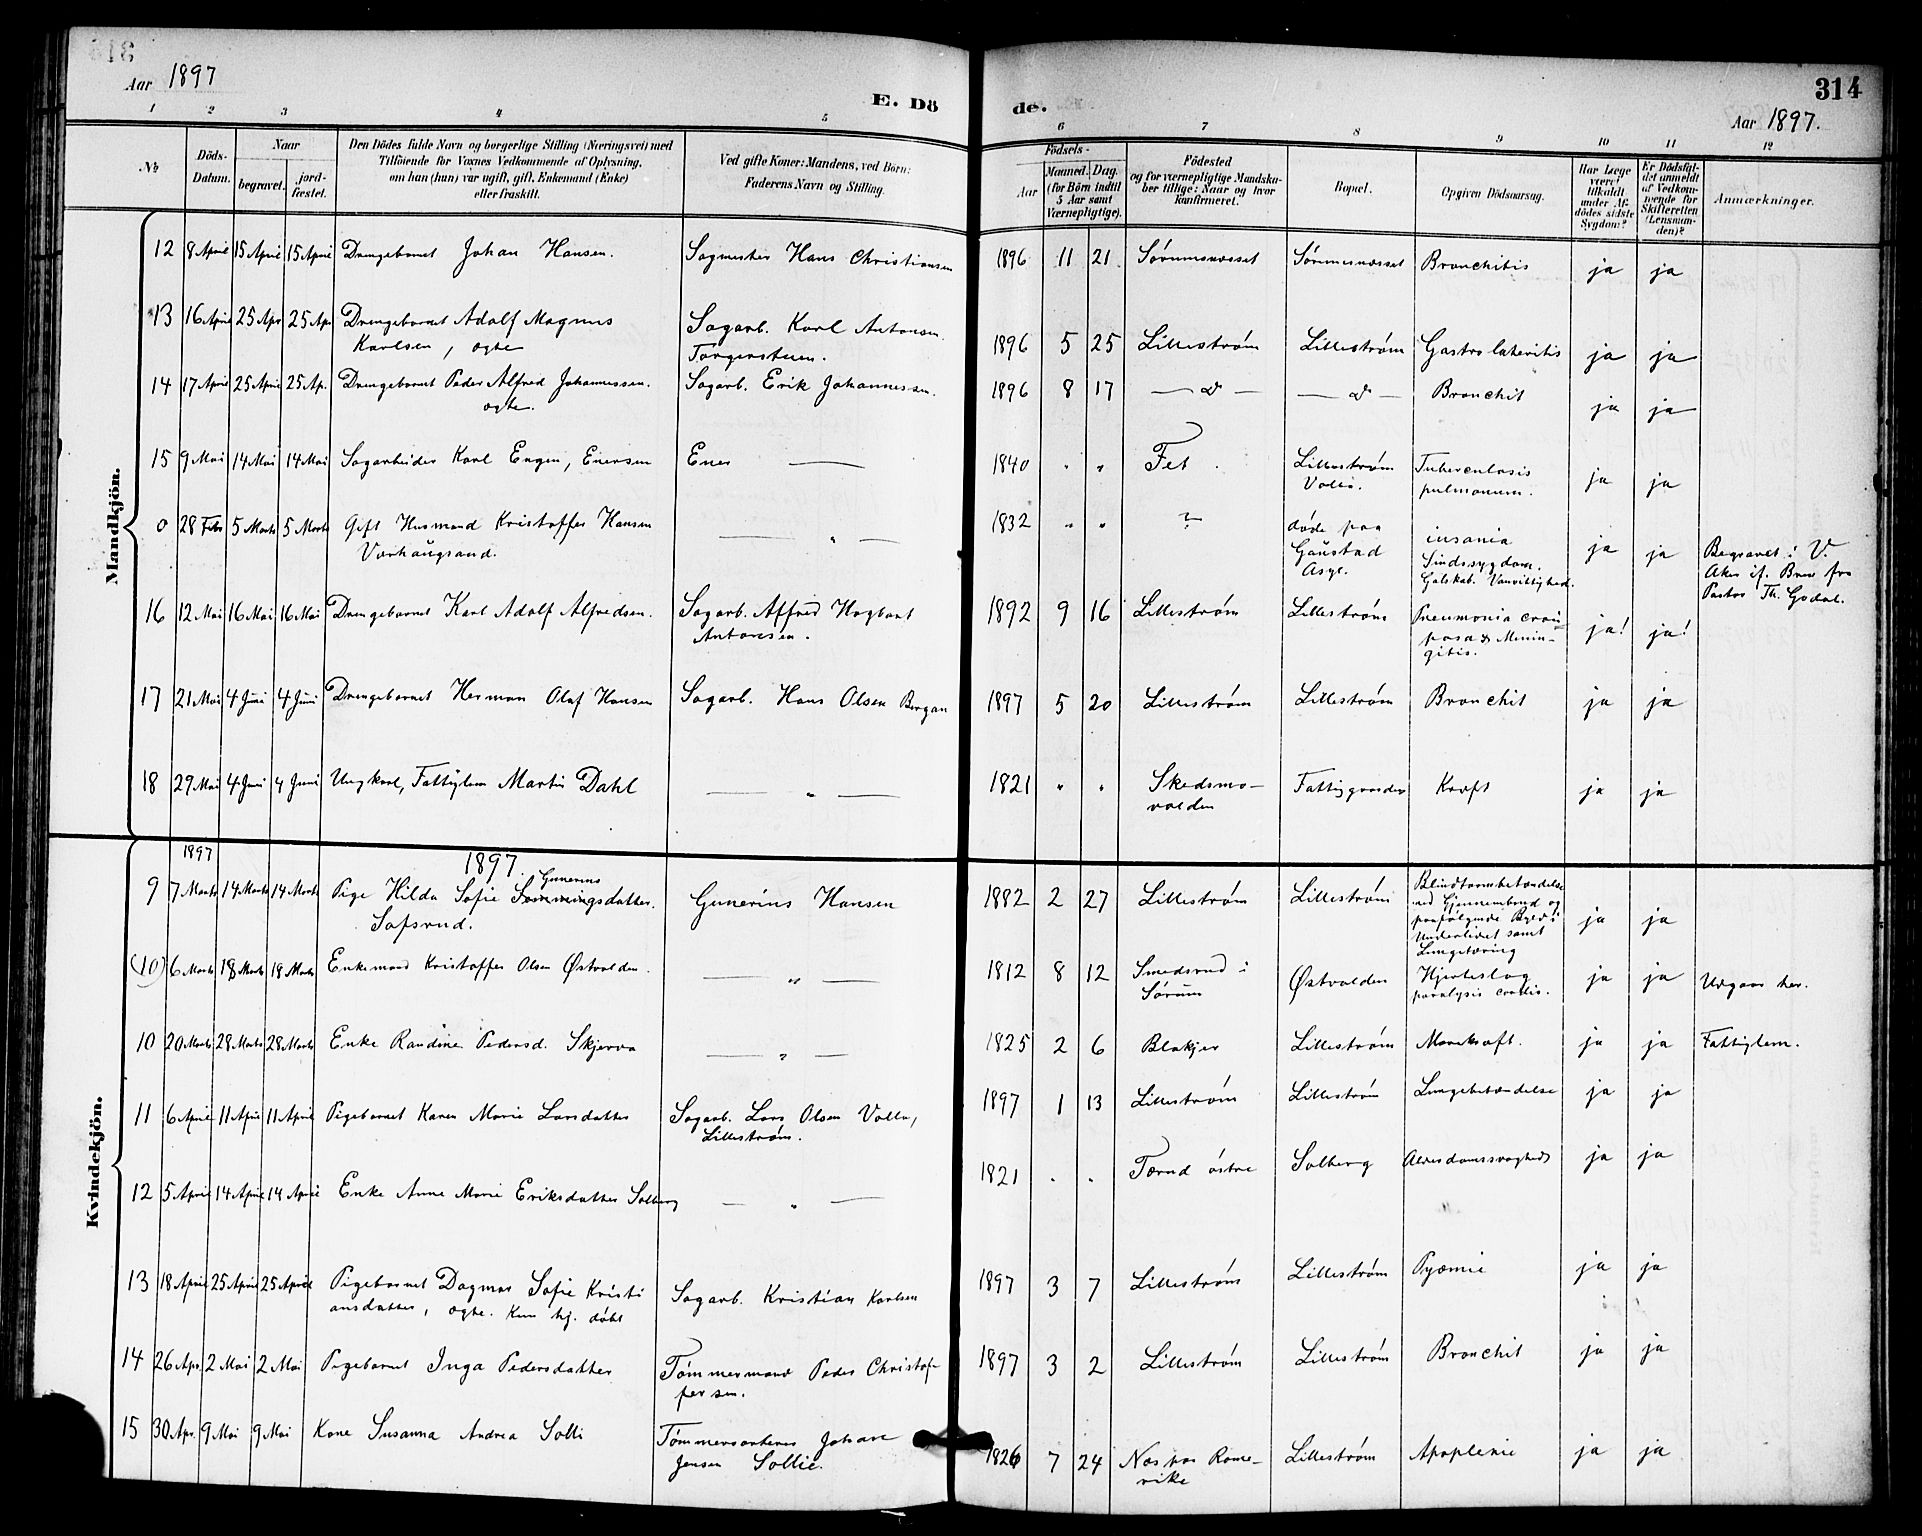 314
Aar 1897
E. Dö de.
Aar 1897.
1 2 3 4 5 6 7 8 9 10 11 12
No
Döds-Datum.
Naar
begravet.
jordfæstet.
Den Dödes fulde Navn og borgerlige Stilling (Næringsvei) med
Tilföiende for Voxnes Vedkommende af Oplysning,
om han (hun) var ugift, gift, Enkemand (Enke)
eller fraskilt.
Ved gifte Koner: Mandens, ved Börn:
Faderens Navn og Stilling.
Födsels-
Aar
Maaned. Dag.
(for Börn indtil
5 Aar samt
Værnepligtige).
Födested
og for værnepligtige Mandska-
ber tillige: Naar og hvor
konfirmeret.
Bopæl.
Opgiven Dödsaarsag.
Har Læge
været
tilkaldt
under Af-
dödes sidste
Sygdom?
Er Dödsfal-
det anmeldt
af Vedkom-
mende for
Skifteretten
(Lensman-
den)?
Anmærkninger.
Mandkjön.
12 8 April 15 April 15 April Drengebarnet Johan Hansen. Sagmester Hans Christiansen 1896 11 21 Sørumsnæsset Sørumsnæsset Bronchitis ja ja
13 16 April 25 Apr 25 Apr Drengebarnet Adolf Magnus Sagarb. Karl Antonsen 1896 5 25 Lillestrøm Lillestrøm ja ja
Karlsen, ægte Torgersteien.
14 17 April 25 April 25 Ap. Drengebarnet Peder Alfred Johannessen. Sagarb. Erik Johannessen. 1896 8 17 — d — — d — Bronchit ja ja
ægte.
15 9 Mai 14 Mai 14 Mai Sagarbeider Karl Engen, Enersen Ener — 1840 " " Fet Lillestrøm Tuberculosis ja ja
Volla. pulmonum.
0 28 Febr 5 Marts 5 Marts Gift Husmand Kristoffer Hansen — " — 1832 " " ? døde paa insania ja ja Begravet i V.
Varhaugsand. Gaustad Sindssygdom. Aker if. Brev fra
Asyl. Galskab. Vanvittighed. Pastor Th. Godal.
16 12 Mai 16 Mai 16 Mai Drengebarnet Karl Adolf Alfredsen. Sagarb. Alfred Hagbart 1892 9 16 Lillestrøm Lillestrøm Pneumonia crou- ja! ja!
Antonsen. posa & Menin-
gitis.
17 21 Mai 4 Juni 4 Juni Drengebarnet Herman Olaf Hansen Sagarb. Hans Olsen Bergan 1897 5 20 Lillestrøm Lillestrøm Bronchit ja ja
18 29 Mai 4 Juni 4 Juni Ungkarl, Fattiglem Martin Dahl — " — 1821 " " Skedsmo- Fattiggaarden Kræft ja ja
volden
Kvindekjön.
1897
1897.
9 7 Marts 14 Marts 14 Marts Pige Hilda Sofie Gunerius Gunerius Hansen 1882 2 27 Lillestrøm Lillestrøm Blindtarmbetændelse ja ja
Safsrud. med Gjennembrud og
paafølgende Byld i
Underlivet samt
Lungetæring
(10) 6 Marts 18 Marts 18 Marts Enkemand Kristoffer Olsen Østvolden. — " — 1812 8 12 Smedsrud i Østvolden Hjerteslag ja ja Udgaar her.
Sørum paralysis cordis.
10 20 Marts 28 Marts 28 Marts Enke Randine Pedersd. Skjerva — " — 1825 2 6 Blakjer Lillestrøm Mavekræft. ja ja Fattiglem.
11 6 April 11 April 11 April Pigebarnet Karen Marie Larsdatter Sagarb. Lars Olsen Volla, 1897 1 13 Lillestrøm Lillestrøm Lungebetændelse ja ja
Lillestrøm.
12 5 April 14 April 14 April Enke Anne Marie Eriksdatter Solberg — " — 1821 " " Tærud østre Solberg Alderdomssvaghed ja ja
13 18 April 25 April 25 April Pigebarnet Dagmar Sofie Kristi Sagarb. Kristian Karlsen 1897 3 7 Lillestrøm Lillestrøm Pyæmie ja ja
ansdatter, ægte. Kun hj. døbt
14 26 Apr. 2 Mai 2 Mai Pigebarnet Inga Pedersdatter Tømmermand Peder Christof- 1897 3 2 Lillestrøm Lillestrøm Bronchit ja ja
fersen.
15 30 Apr. 9 Mai 9 Mai Kone Susanna Andrea Solli Tømmersorterer Johan 1826 7 24 Næs paa Rome- Lillestrøm Apoplexie ja ja
Jensen Sollie. rike